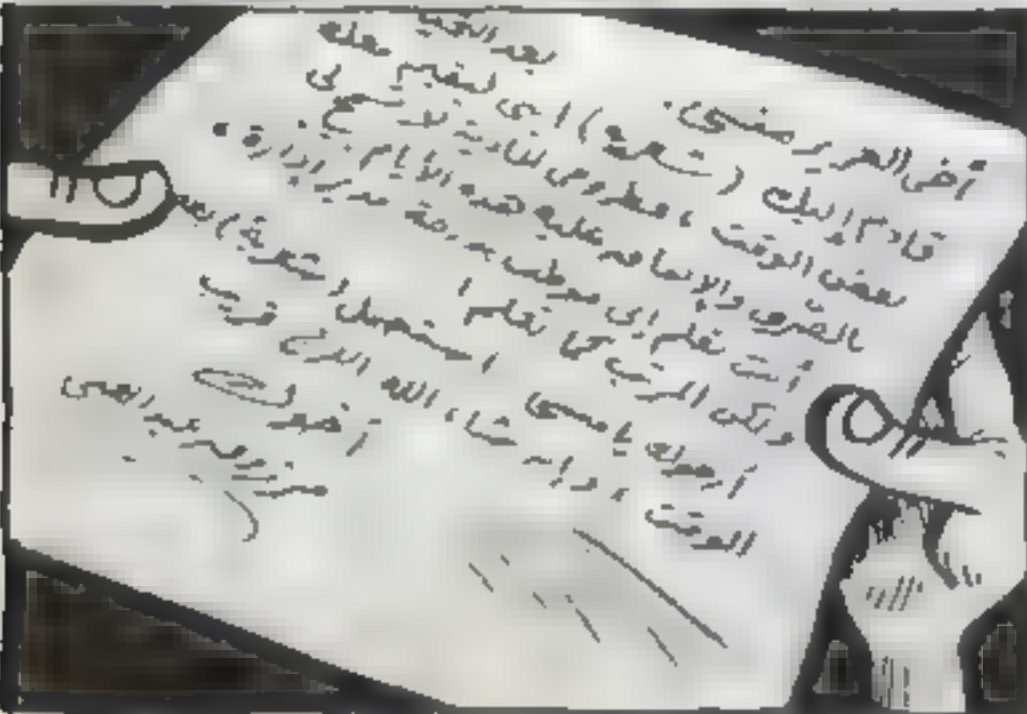 أخى العزيز مفتى. بعد التحية
قادم إليك (شعرية) ابى ليقيم معك
بعض الوقت ، فظروفى المادية لا تسمح لى
بالصرف والإنفاق عليه هذه الأيام.
أنت تعلم إنى موظف بدرجة مدير إدارة.
ولكن المرتب كما تعلم!
أرجوك يا مفتى استحمل (شعرية) بعض
الوقت ، وإن شاء الله الفرج قريب
أخوك
عبد